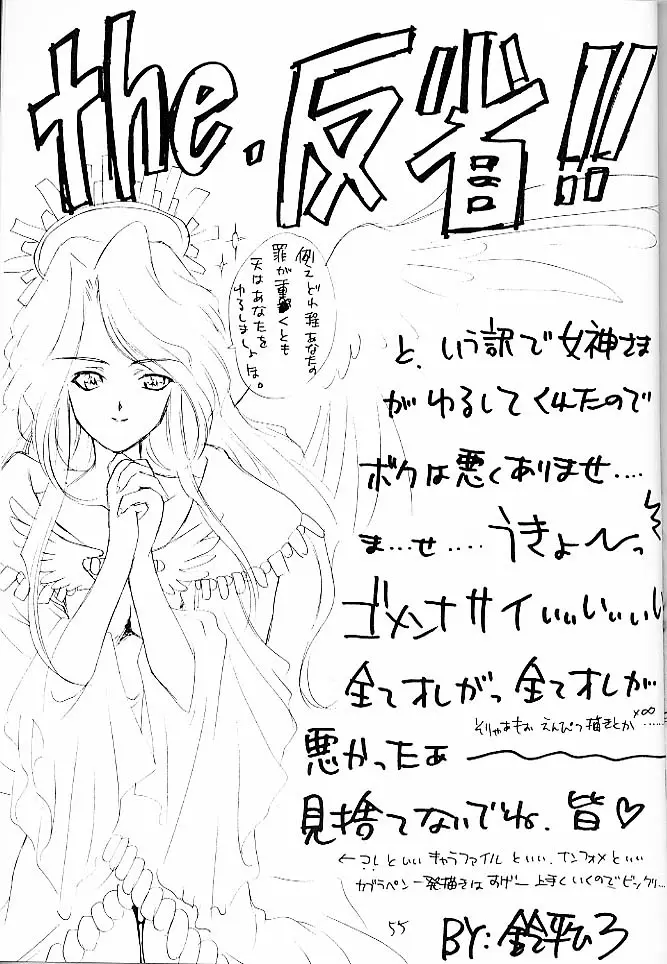 the.反省!!
例えどれ程あなたの
罪が重くとも
天はあなたを
ゆるしましょぅ。
と、いう訳で女神さま
がゆるしてくれたので
ボクは悪くありませ....
ま...せ....うきょ〜っ
ゴメンナサイぃぃぃぃぃ
全てオレがっ全てオレが
そりゃあもぉ えんぴつ描きとか ×∞ ......
悪かったぁ
見捨てないでね、皆♡
←?!といいキャラファイルといい、インフォメといい
ガラペン一発描きはすげー上手くいくのでビックリ...
55
BY:鈴平ひろ